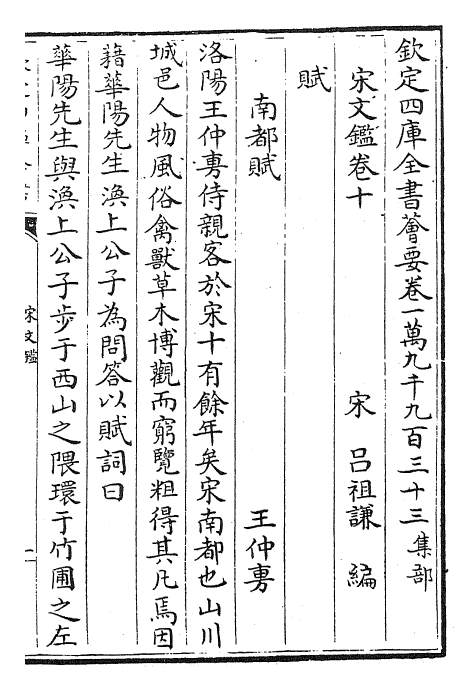 欽定四庫全書薈要卷一萬九千九百三十三集部
宋文鑑卷十　宋　呂祖謙　編
賦
南都賦　王仲旉
洛陽王仲旉侍親客於宋十有餘年矣宋南都也山川
城邑人物風俗禽獸草木博觀而窮覽粗得其凡焉因
藉華陽先生渙上公子為問答以賦詞曰
華陽先生與渙上公子步于西山之隈環于竹圃之左
宋文鑑